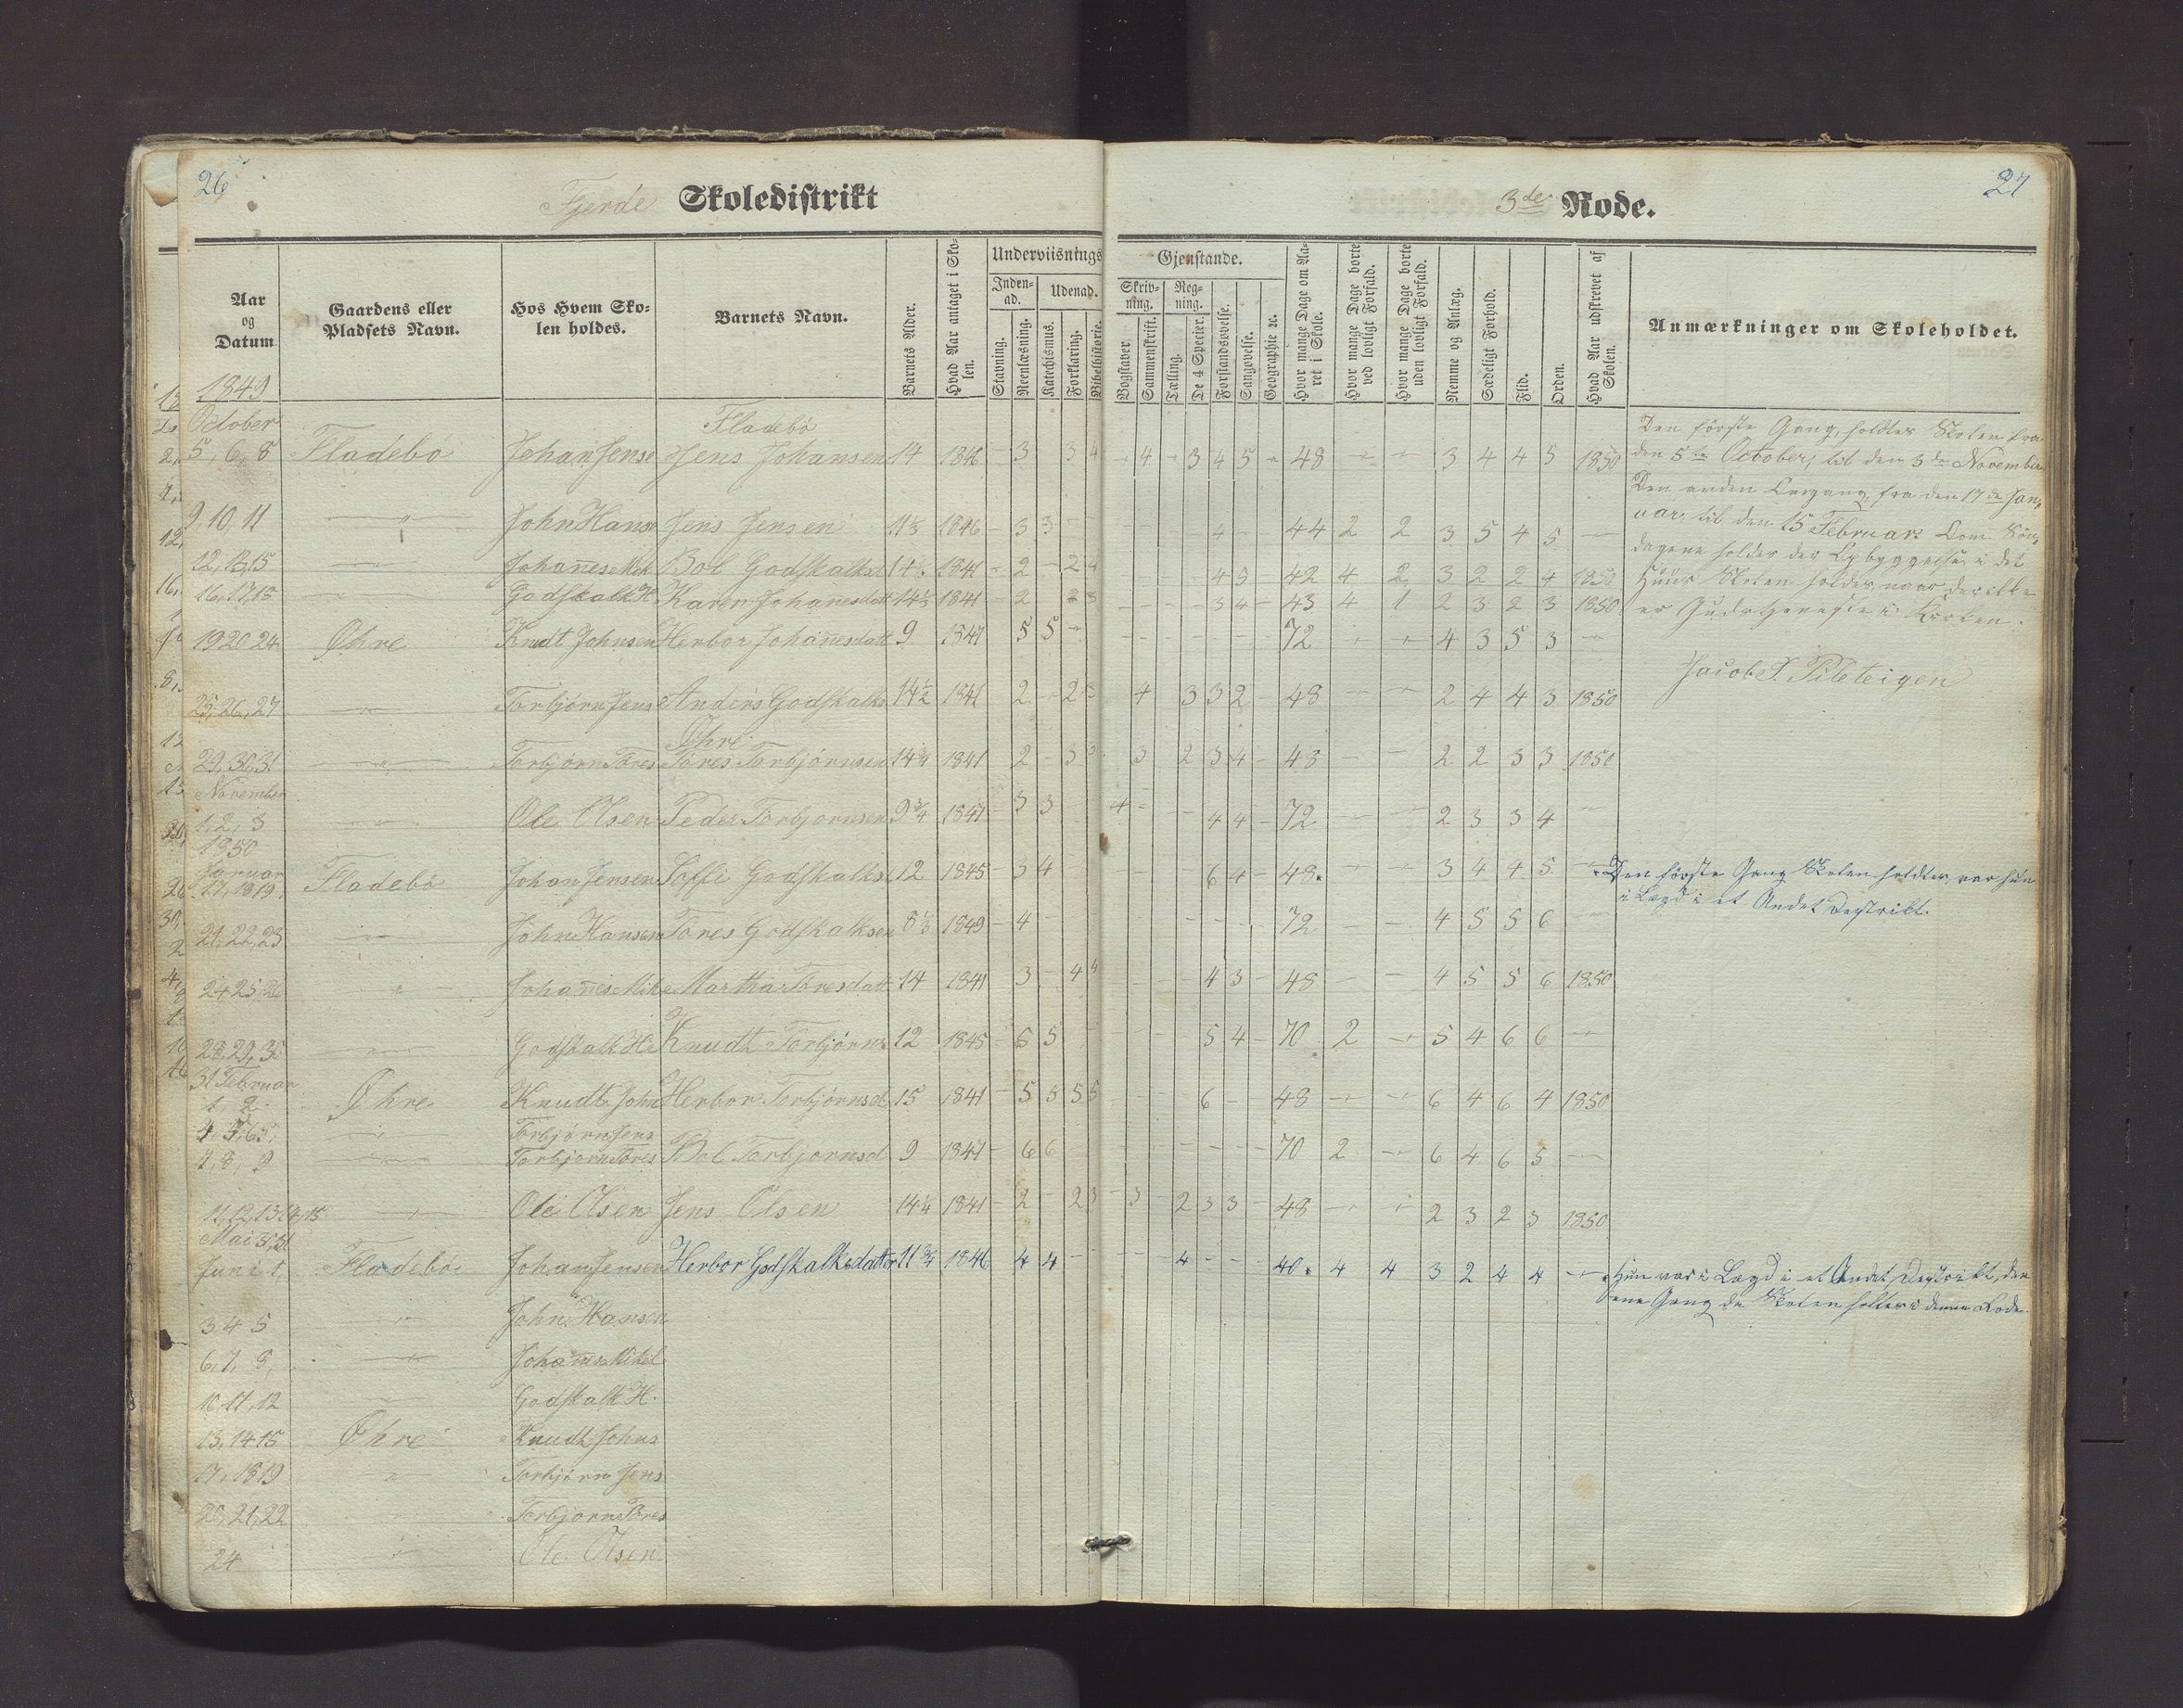 26
Fjerde Skoledistrikt
Aar og Datum
Gaardens eller Pladsets Navn.
Hos Hvem Skolen holdes.
Barnets Navn.
Barnets Alder.
Hvad Aar antaget i Skolen.
Underviisnings
Indenad. Udenad.
Stavning. Reenlæsning. Katechismus. Forklaring. Bibelhistorie.
1849
October
Fladebö
5, 6, 8 Fladebö Johan Jense Jens Johansen 14 1846 - 3 3 4
9, 10, 11 - " - John Hans Jens Jensen 11⅓ 1846 - 3 3 -
12, 13, 15 - " - Johan̄es Mik Bol Godskalksd 1841 - 2 - 2 4
16, 17, 18 - " - Godskalk H. Karen Johan̄esdatt 14⅓ 1841 - 2 - 2 3
19 20 24 Øhre Knudt Johnsen Herbor Johan̄esdatt 9 1847 5 5 -
25, 26, 27 - " - Torbjörn Jense Anders Godskalks 14½ 1841 2 - 2 3
Øhre
29, 30, 31 - " - Torbjörn Tores Tores Torbjörnsen 14¾ 1841 2 - 3 3
November
1, 2, 3 - " - Ole Olsen Peder Torbjörnsen 9¾ 1847 - 3 3
1850
Januar
17, 18 19. Fladebö Johan Jensen Soffi Godskalksd 12 1845 - 3 4
21, 22, 23 - " - John Hansen Tores Godskalksen 8⅓ 1849 - 4
24 25 26 - " - Johan̄es Mike Martha Toresdatt 14 1841 3 - 4 4
28, 29, 30 - " - Godskalk H. Knudt Torbjörns 12 1845 - 6 5
31 Februar
1, 2 Øhre Knudt John Herbor Torbjörnsd 15 1841 - 5 5 5 5
4, 5, 6 - " - Torbjörn Jens
7, 8, 9 - " - Torbjörn Tores Bol Torbjörnsd 9 1847 - 6 6
11, 12, 13 14, 15 - " - Ole Olsen Jens Olsen 14¼ 1841 - 2 - 2 3
Mai 30, 31
Juni 1, Fladebö Johan Jensen Herbor Godskalksdatter 11¾ 1846 4 4 -
3 4 5 - " - John Hansen
6, 7, 8, - " - Johan̄es Mikel
10, 11, 12 Godskalk H.
13, 14 15 Øhre Knudt Johns
17, 18 19 - " - Torbjörn Jens
20, 21, 22 Torbjörn Tores
24 Ole Olsen
27
3de Rode.
Gjenstande.
Skrivning. Regning.
Bogstaver. Sammenskrift. Tælling. De 4 Specier. Forstandsøvelse. Sangøvelse. Geographie ꝛc.
Hvor mange Dage om Aaret i Skole.
Hvor mange Dage borte ved lovligt Forfald.
Hvor mange Dage borte uden lovligt Forfald.
Nemme og Anlæg.
Sædeligt Forhold.
Flid.
Orden.
Hvad Aar udskrevet af Skolen.
Anmærkninger om Skoleholdet.
- 4 - 3 4 5 - 48 - - 3 4 4 5 1850
4 - 44 2 2 3 5 4 5 -
4 5 - 42 4 2 3 2 2 4 1850
3 4 - 43 4 1 2 3 2 3 1850
72 - - 4 3 5 3 -
4 3 3 2 - 48 - - 2 4 4 3 1850
3 2 3 4 - 48 - - 2 2 3 3 1850
4 - - 4 4 - 72 - - 2 3 3 4
6 4 - 48. - - 3 4 4 5 -
72 - - 4 5 5 6
4 3 - 48 - - 4 5 5 6 1850
5 4 - 70 2 - 5 4 6 6 -
6 - - 48 - - 6 4 6 4 1850
70 2 - 6 4 6 5 -
3 - 2 3 3 - 48 - - 2 3 2 3 1850
4 - - - 40. 4 4 3 2 4 4 -
Den förste Gang, holdtes Skolen fra
den 5te October, til den 3de November
Den anden Omgang fra den 17de Jan,
uar, til den 15 Februar. Om Sön,
dagene holdes der Opbyggelse i det
Huus Skolen holdes, naar der ikke
er Gudstjeneste i Kirken.
Jacob S. Pileteigen
Den förste Gang Skolen holdtes, var hun
i Lægd i et Andet Destrikt.
Hun var i Lægd i et Andet Destrikt, den
ene Gang da Skolen holtes i denne Rode